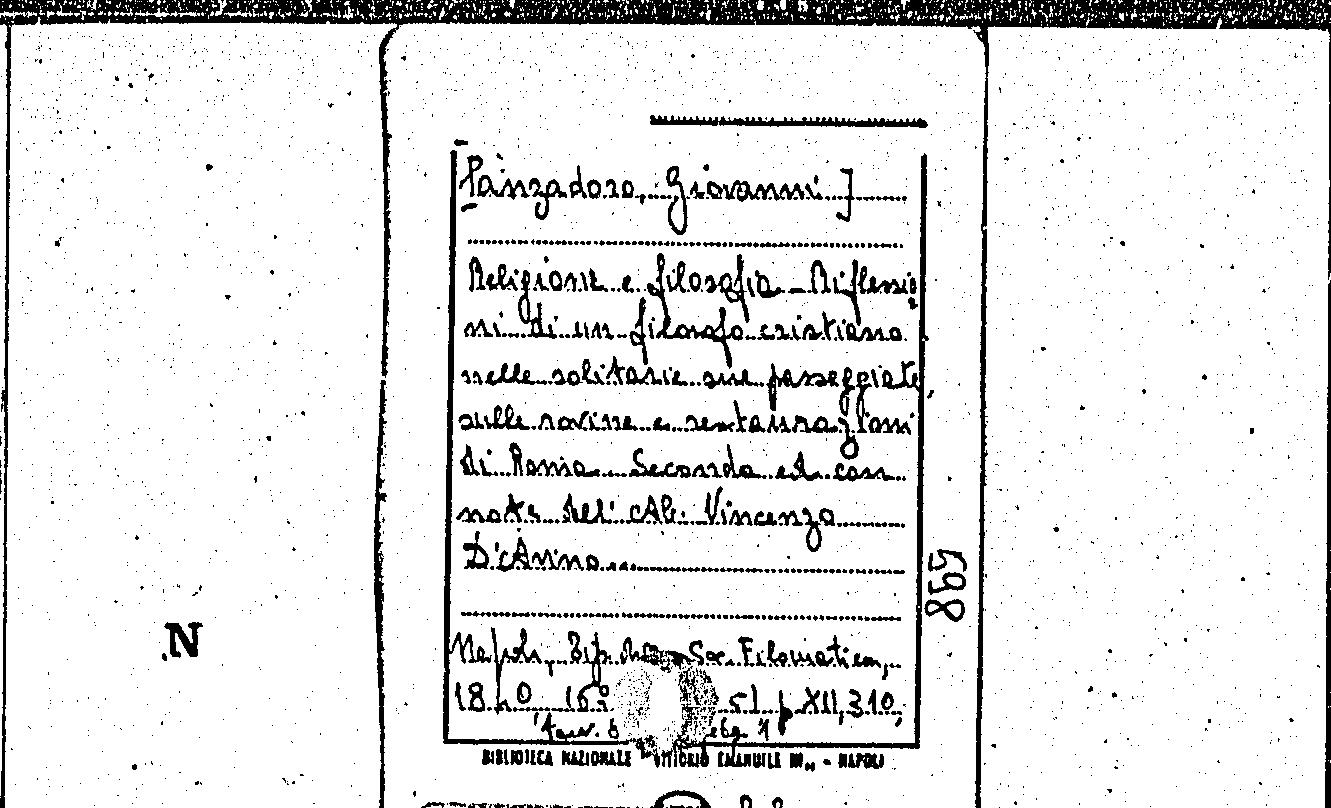 [Panzadoro, Giovanni]
Religione e filosofia - Riflessio
ni di un filosofo cristiano
nelle solitarie sue passeggiate
sulle rovine e restaurazioni
di Roma. Seconda ed. con
note dell' Ab. Vincenzo
D'Anna...
698
N
Napoli, Tip. Soc. Filomatica,
16° p. XII, 310,
BIBLIOTECA NAZIONALE VITTORIO EMANUELE III - NAPOLI